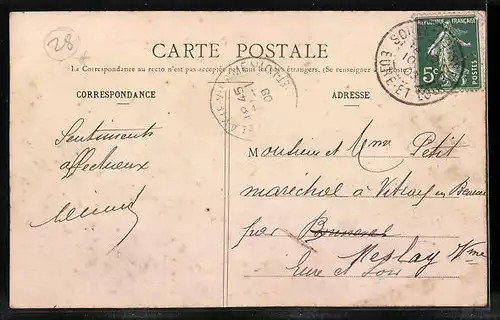 28
CARTE POSTALE
La Correspondance au recto n'est pas acceptée par tous les pays étrangers. (Se renseigner à la Poste)
CORRESPONDANCE
ADRESSE
REPUBLIQUE FRANÇAISE
5c
POSTES
EURE-ET-LOIR
08
Sentiments
affectueux
Monsieur et Mme Petit
maréchal à Vitray en Beauce
par Bonneval
Meslay Vme
Eure et Loir